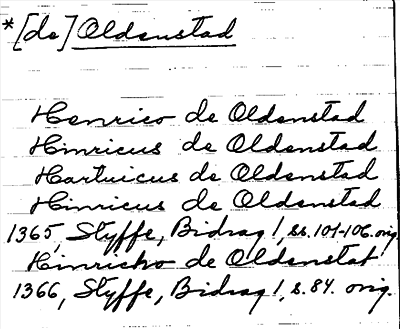 *[de] Oldenstad
Henrico de Oldenstad
Hinricus de Oldenstad
Hartuicus de Oldenstad
Hinricus de Oldenstad
1365, Styffe, Bidrag 1, ss. 101-106. orig.
Hinricho de Oldenstat
1366, Styffe, Bidrag 1, s. 84. orig.